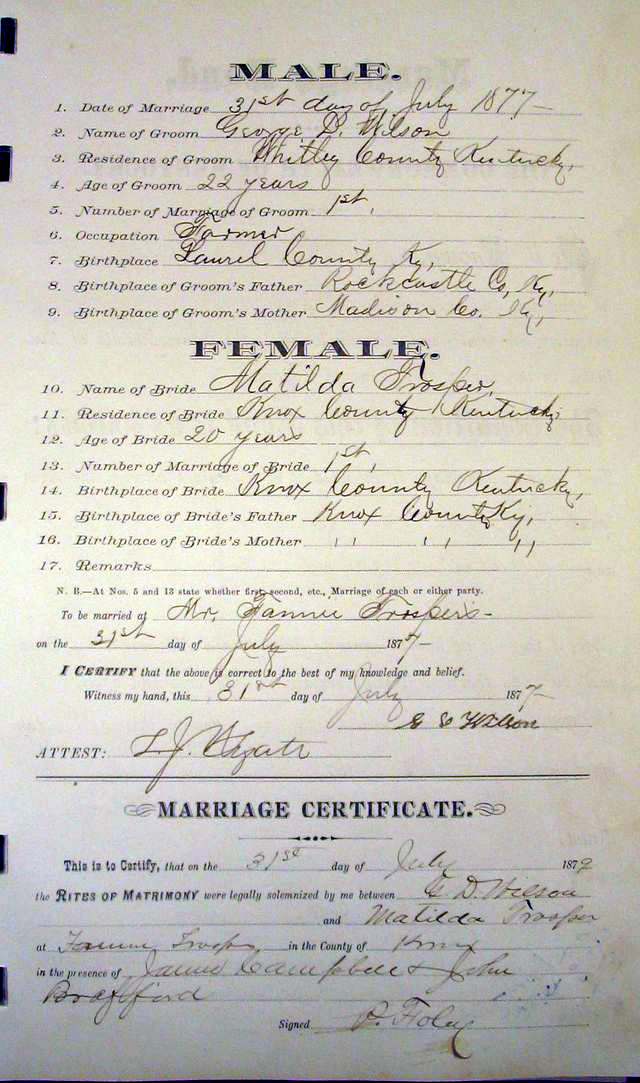 MALE.
1. Date of Marriage 31st day of July 1877-
2. Name of Groom George D. Wilson
3. Residence of Groom Whitley County Kentucky,
4. Age of Groom 22 years
5. Number of Marriage of Groom 1st,
6. Occupation Farmer
7. Birthplace Laurel County Ky,
8. Birthplace of Groom's Father Rockcastle Co, Ky,
9. Birthplace of Groom's Mother Madison Co. Ky,
FEMALE.
10. Name of Bride Matilda Trosper,
11. Residence of Bride Knox County Kentucky,
12. Age of Bride 20 years
13. Number of Marriage of Bride 1st,
14. Birthplace of Bride Knox County Kentucky,
15. Birthplace of Bride's Father Knox County Ky,
16. Birthplace of Bride's Mother " " "
17. Remarks
N. B.—At Nos. 5 and 13 state whether first, second, etc., Marriage of each or either party.
To be married at Mr. Trospers-
on the 31st day of July 1877-
I CERTIFY that the above is correct to the best of my knowledge and belief.
Witness my hand, this 31st day of July 1877-
Wilson
ATTEST: L. J.
MARRIAGE CERTIFICATE.
This is to Certify, that on the 31st day of July 1879
the RITES OF MATRIMONY were legally solemnized by me between G. D. Wilson
and Matilda Trosper
at in the County of Knox
in the presence of Campbell & John
Signed Foley